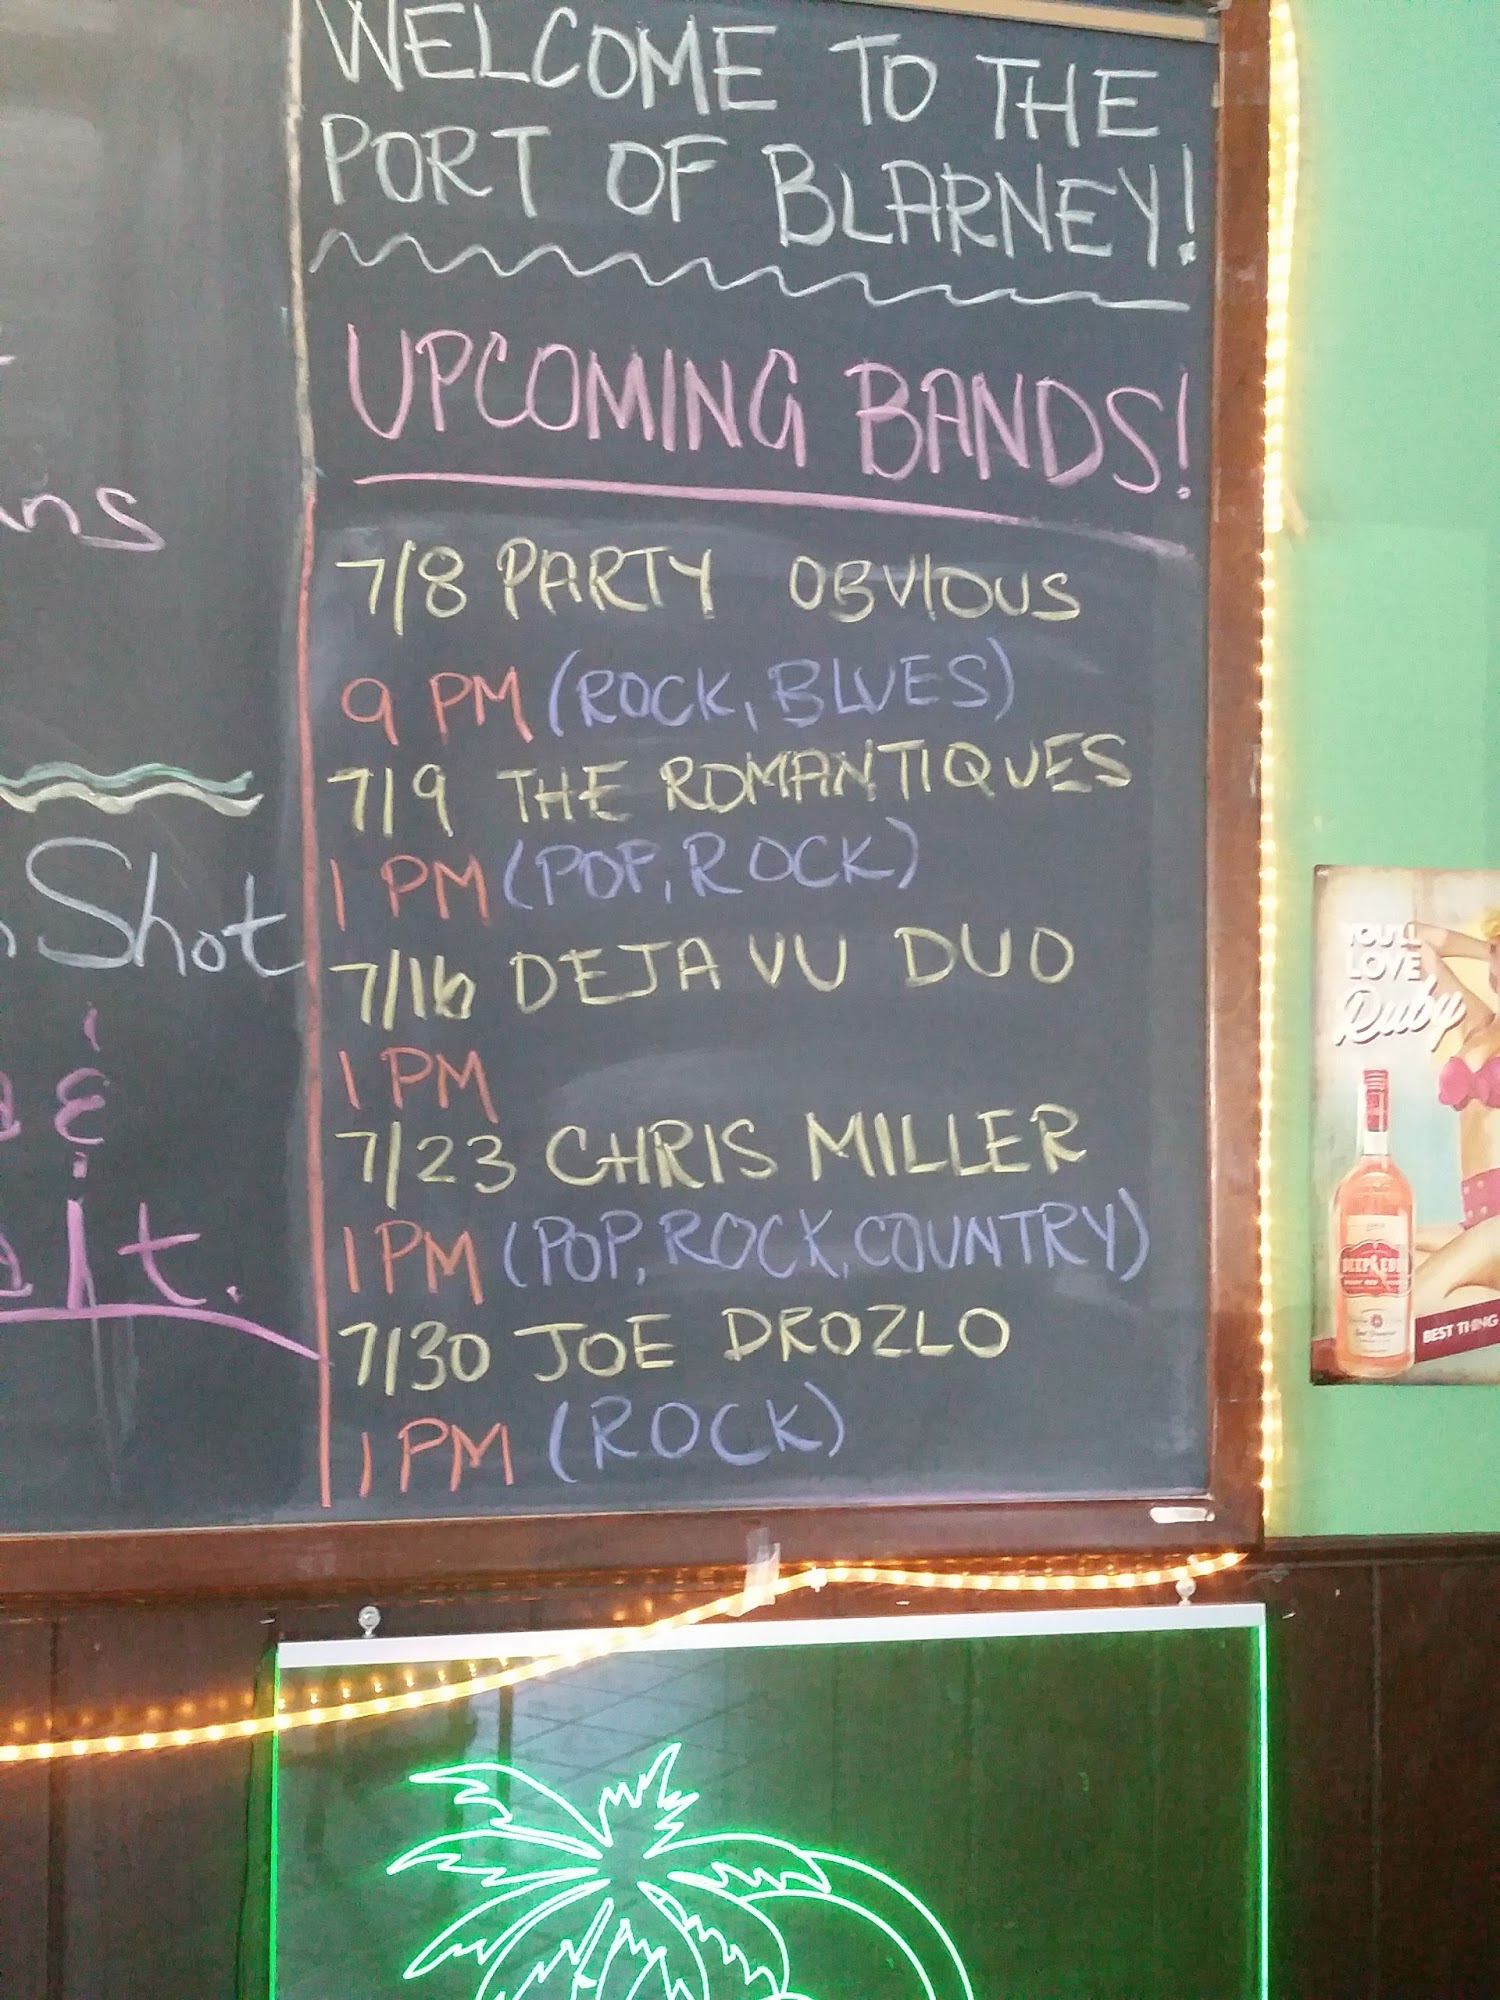 WELCOME TO THE
PORT OF BLARNEY!
UPCOMING BANDS!
7/8 PARTY OBVIOUS
9 PM (ROCK, BLUES)
7/9 THE ROMANTIQUES
1 PM (POP, ROCK)
7/16 DEJA VU DUO
1 PM
7/23 CHRIS MILLER
1 PM (POP, ROCK, COUNTRY)
7/30 JOE DROZLO
1 PM (ROCK)
Shot
YOU'LL
LOVE
Ruby
DEEP EDDY
BEST THING